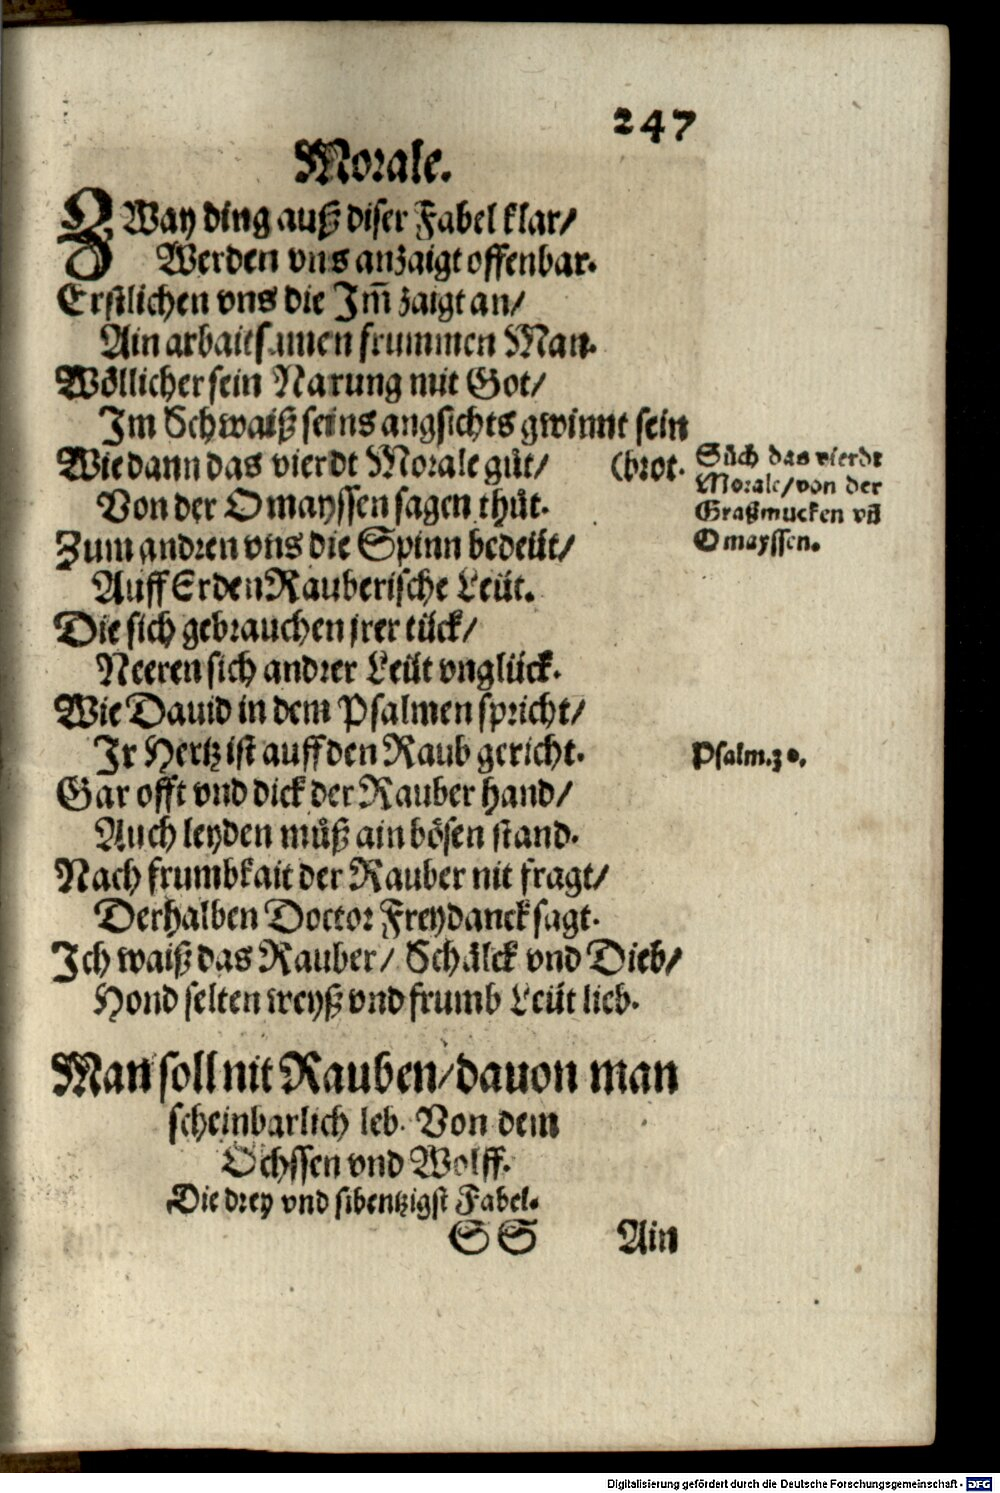 247
Morale.
ZWay ding auß diser Fabel klar/
Werden vns anzaigt offenbar.
Erstlichen vns die Im̃ zaigt an/
Ain arbaitsamen frummen Man.
Wöllicher sein Narung mit Got/
Im Schwaiß seins angsichts gwinnt sein
Wie dann das vierdt Morale gůt/ (brot.
Von der Omayssen sagen thůt.
Zum andren vns die Spinn bedeüt/
Auff Erden Rauberische Leüt.
Die sich gebrauchen jrer tück/
Neeren sich andrer Leüt vnglück.
Wie Dauid in dem Psalmen spricht/
Ir Hertz ist auff den Raub gericht.
Gar offt vnd dick der Rauber hand/
Auch leyden můß ain bösen stand.
Nach frumbkait der Rauber nit fragt/
Derhalben Doctor Freydanck sagt.
Ich waiß das Rauber/ Schälck vnd Dieb/
Hond selten weyß vnd frumb Leüt lieb.
Sůch das vierdt
Morale/von der
Graßmucken vñ
Omayssen.
Psalm.30.
Man soll nit Rauben/dauon man
scheinbarlich leb. Von dem
Ochssen vnd Wolff.
Die drey vnd sibentzigst Fabel.
SS Ain
Digitalisierung gefördert durch die Deutsche Forschungsgemeinschaft - DFG